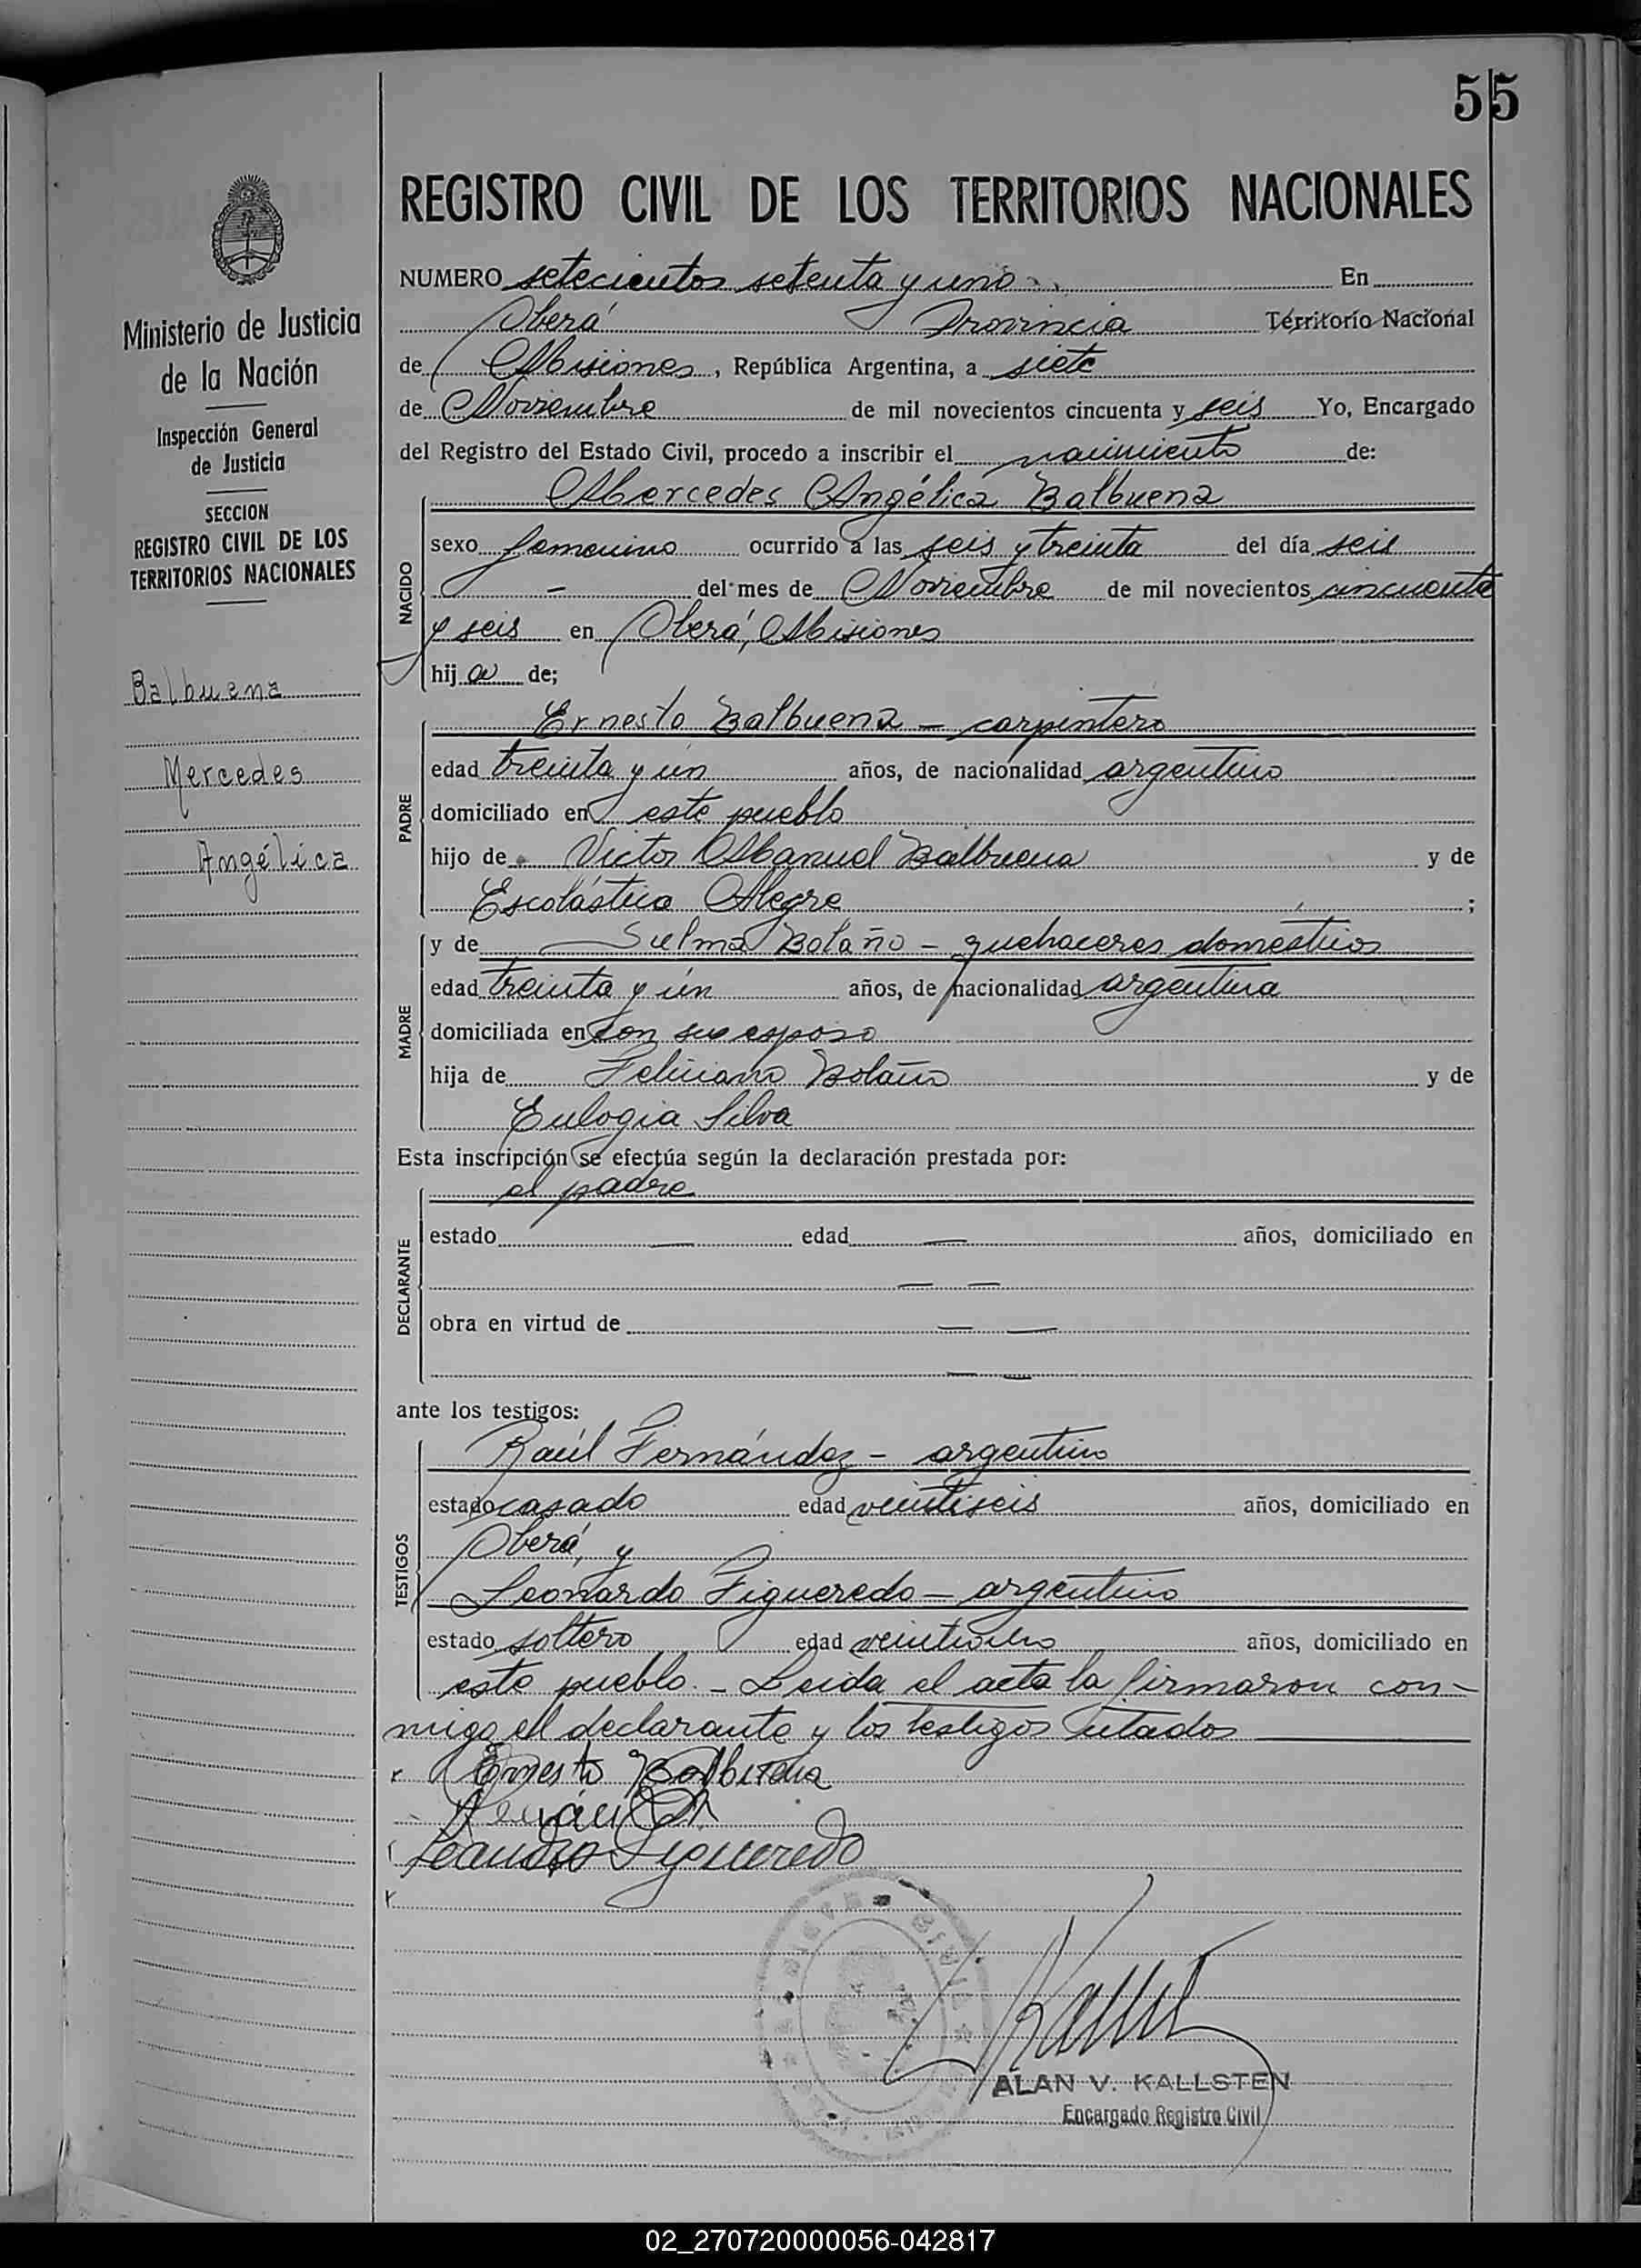 55
REGISTRO CIVIL DE LOS TERRITORIOS NACIONALES
Ministerio de Justicia
de la Nación
Inspección General
de Justicia
SECCION
REGISTRO CIVIL DE LOS
TERRITORIOS NACIONALES
Balbuena
Mercedes
Angélica
NUMERO setecientos setenta y uno En
Oberá Provincia Territorio Nacional
de Misiones, República Argentina, a siete
de Noviembre de mil novecientos cincuenta y seis Yo, Encargado
del Registro del Estado Civil, procedo a inscribir el nacimiento de:
NACIDO
Mercedes Angélica Balbuena
sexo femenino ocurrido a las seis y treinta del día seis
- del mes de Noviembre de mil novecientos cincuenta
y seis en Oberá, Misiones
hija de;
PADRE
Ernesto Balbuena - carpintero
edad treinta y un años, de nacionalidad argentino
domiciliado en este pueblo
hijo de Victor Manuel Balbuena y de
Escolástica Alegre ;
MADRE
y de Sulma Bolaño - quehaceres domesticos
edad treinta y un años, de nacionalidad argentina
domiciliada en con su esposo
hija de Feliciano Bolaño y de
Eulogia Silva
Esta inscripción se efectúa según la declaración prestada por:
DECLARANTE
el padre
estado — edad — años, domiciliado en
— —
obra en virtud de — —
— —
ante los testigos:
TESTIGOS
Raúl Fernández - argentino
estado casado edad veintiseis años, domiciliado en
Oberá, y
Leonardo Figueredo - argentino
estado soltero edad años, domiciliado en
este pueblo. - Leida el acta la firmaron con-
migo el declarante y los testigos citados
Ernesto Balbuena
Figueredo
ALAN V. KALLSTEN
Encargado Registro Civil
02_270720000056-042817